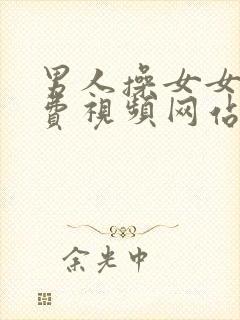 男人操女女
費視頻网站
余光中